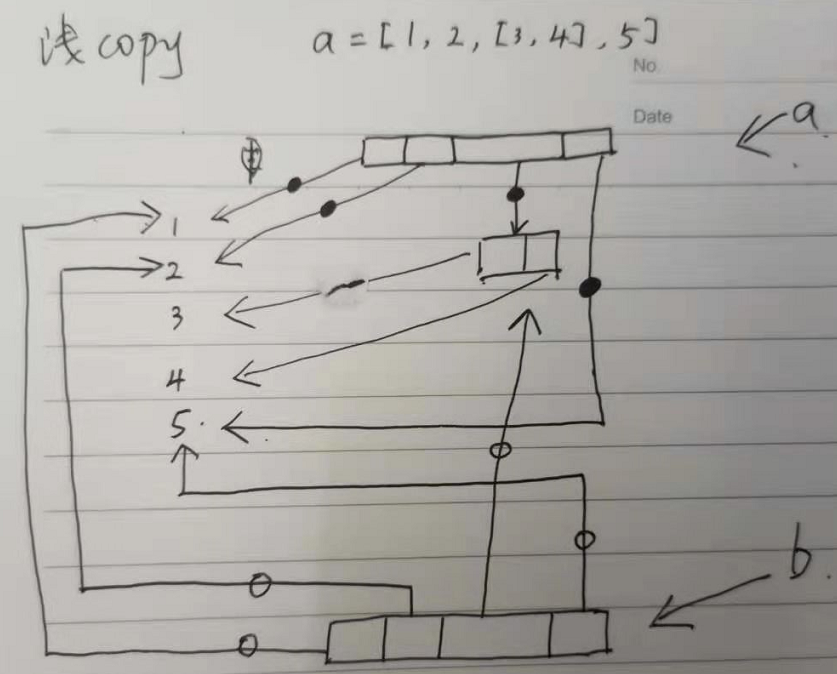 浅copy
a = [1, 2, [3, 4], 5]
No
Date
a
1
2
3
4
5
b